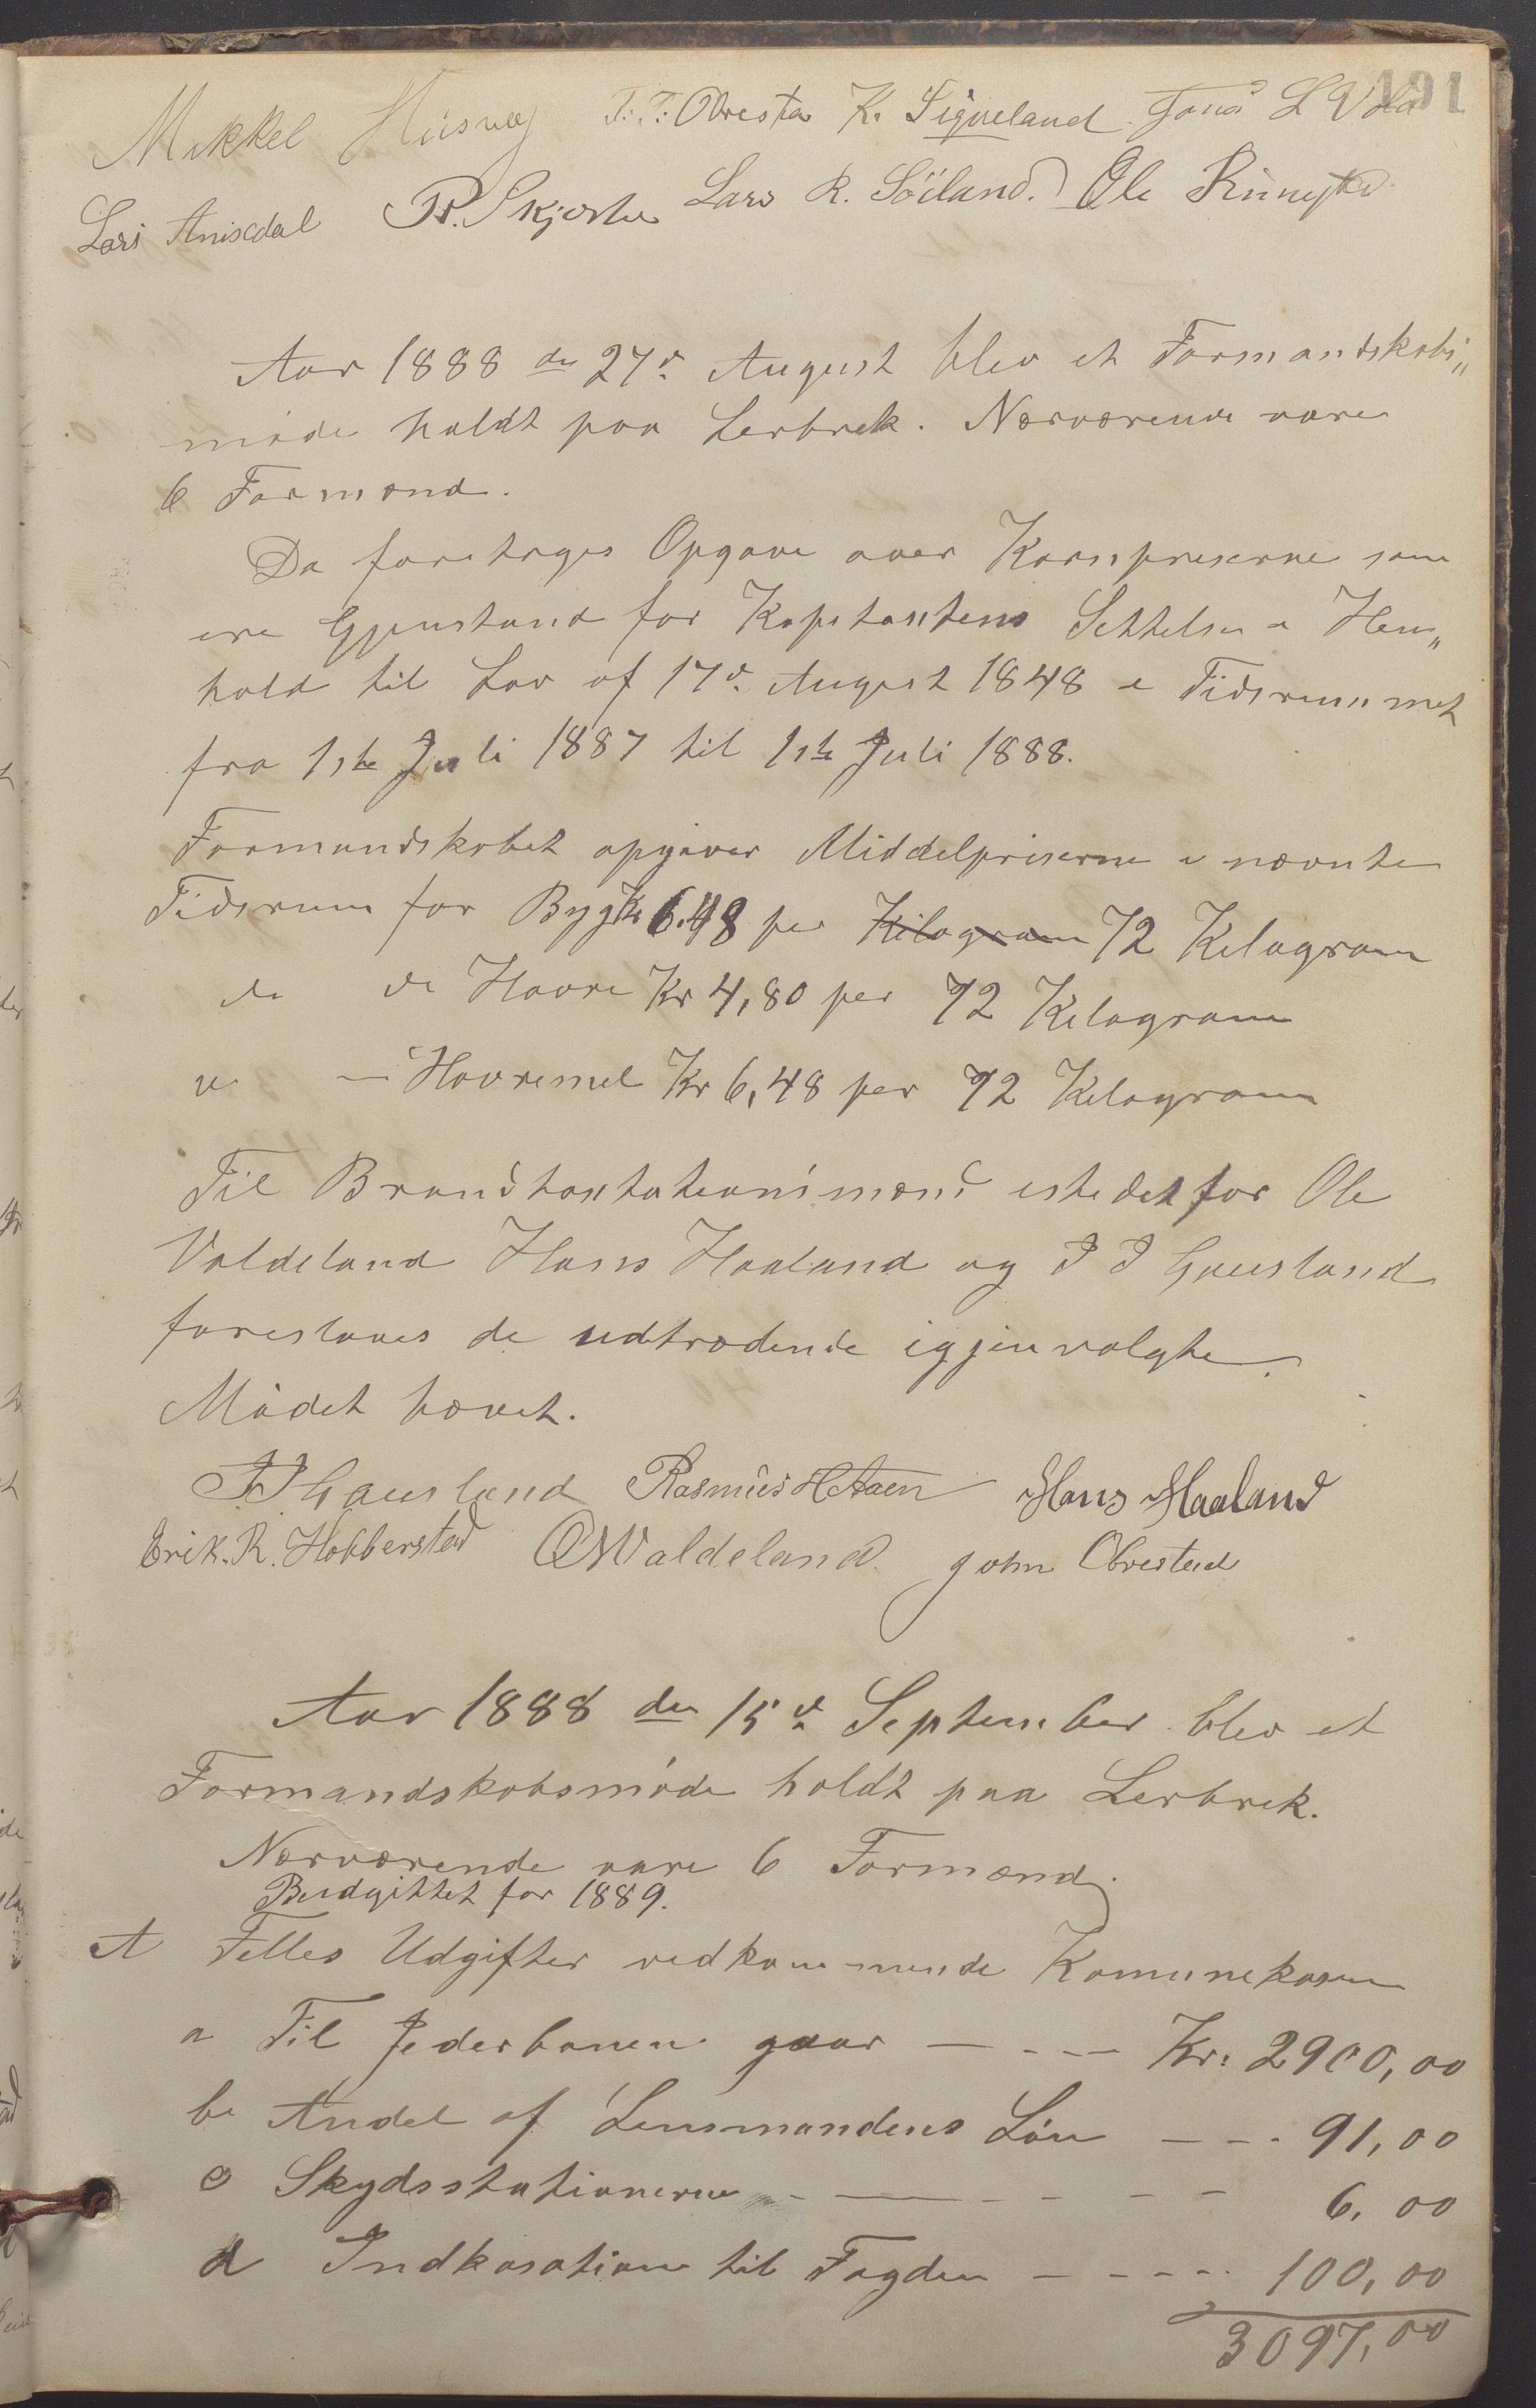 191
Mikkel Husveg T. T. Obresta K. Sigveland Jonas L Vold
Lars Anisdal P. Skjerhe Lars R. Söiland. Ole Ringsta
Aar 1888 den 27de August blev et Formandskabs„
møde holdt paa Lerbrek. Nærværende vare
6 Formænd.
Da foretages Opgave over Kornpriserne som
ere Gjenstand for Kapitaxtens Settelse i Hen„
hold til Lov af 17de August 1848 i Tidsrummet
fra 1ste Juli 1887 til 1ste Juli 1888.
Formandskabet opgiver Middelpriserne i nævnte
Tidsrum for Byg Kr 6.48 per Kilogram 72 Kilogram
do do Havre Kr 4,80 per 72 Kilogram
— Havremel Kr 6,48 per 72 Kilogram
Til Brandtaxtationsmænd istedetfor Ole
Valdeland Hans Haaland og J J Gausland
foreslaaes de udtrædende igjenvalgte.
Mødet hævet.
JJ Gausland Rasmus H Aaen Hans Haaland
Erik. R. Hobberstad O Waldeland. John Obrestad
Aar 1888 den 15de September blev et
Formandskabsmøde holdt paa Lerbrek.
Nærværende vare 6 Formænd.
Budgittet for 1889.
A Felles Udgifter vedkommende Komunekasen
a Til Jederbanen gaar — - - — Kr. 2900,00
b Andel af Lensmandens Løn — - - 91,00
c Skydsstationerne - — - - - - 6,00
d Indkasation til Fogden - - - - - 100,00
3097,00